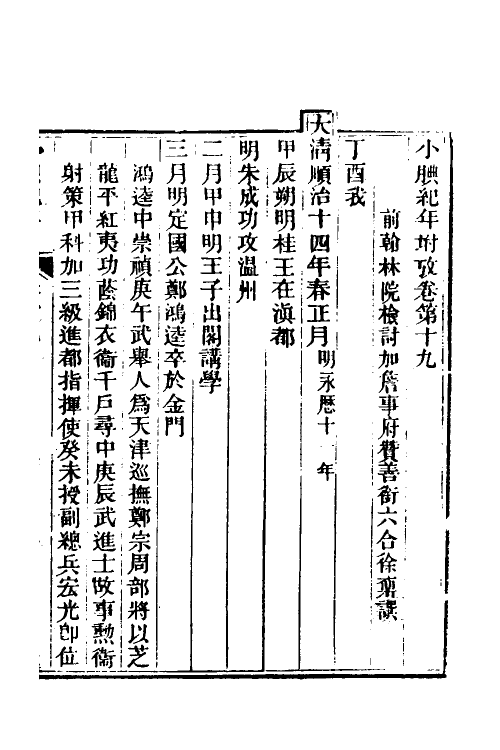 小腆紀年附攷卷第十九
前翰林院檢討加詹事府贊善銜六合徐鼒譔
丁酉我
大淸順治十四年春正月明永曆十 年
甲辰朔明桂王在滇都
明朱成功攻溫州
二月甲申明王子出閣講學
三月明定國公鄭鴻逵卒於金門
鴻逵中崇禎庚午武舉人爲天津巡撫鄭宗周部將以芝
龍平紅夷功蔭錦衣衞千戶尋中庚辰武進士故事勲衞
射策甲科加三級進都指揮使癸未授副總兵宏光卽位